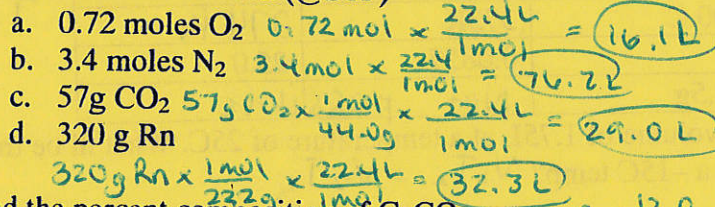 a. 0.72 moles O₂ 0.72 mol x 22.4L / 1mol = 16.1L
b. 3.4 moles N₂ 3.4mol x 22.4 / 1mol = 76.2L
c. 57g CO₂ 57g CO₂ x 1mol / 44.0g x 22.4L / 1mol = 29.0L
d. 320 g Rn
320g Rn x 1mol / 222g x 22.4L / 1mol = 32.3L